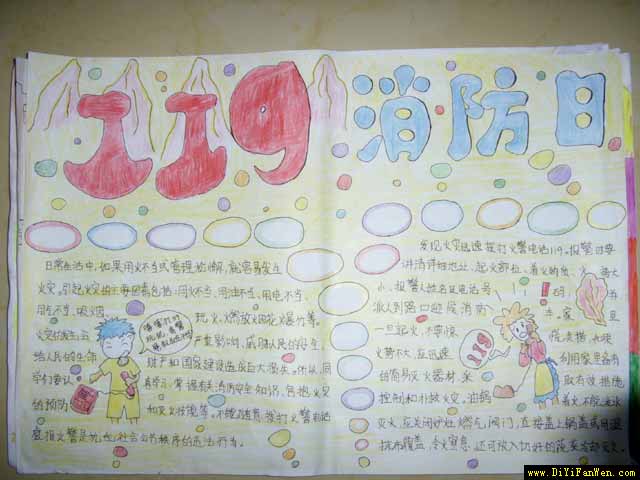 119 消防日
日常生活中,如果用火不当或管理
火灾。引起火灾的主要因素包括:用火不当、用油不当、用电不当、
用气不当、吸烟、玩火、燃放烟花爆竹等。
火灾的发生
给人民的生命财产和国家建设造成巨大损失。
学习、掌握有关消防安全知识,包括火灾
的预防和灭火技能等。不能随意拨打火警电话
谎报火警是扰乱社会公共秩序的违法行为。
发现火灾迅速拨打火警电话119。报警时要
讲清详细地址、起火部位、着火的物质、火势大
小、报警人姓名及电话号码,并
派人到路口迎候消防车。家
一旦起火,不要惊慌
火势不大,应迅速利用家里备有
的简易灭火器材,采取有效措施
控制和扑救火灾。油锅着火不能泼水
灭火,应关闭炉灶燃气阀门,直接盖上锅盖或用湿
抹布覆盖,令火窒息,还可放入切好的蔬菜冷却灭火。
119
www.DiYiFanWen.com